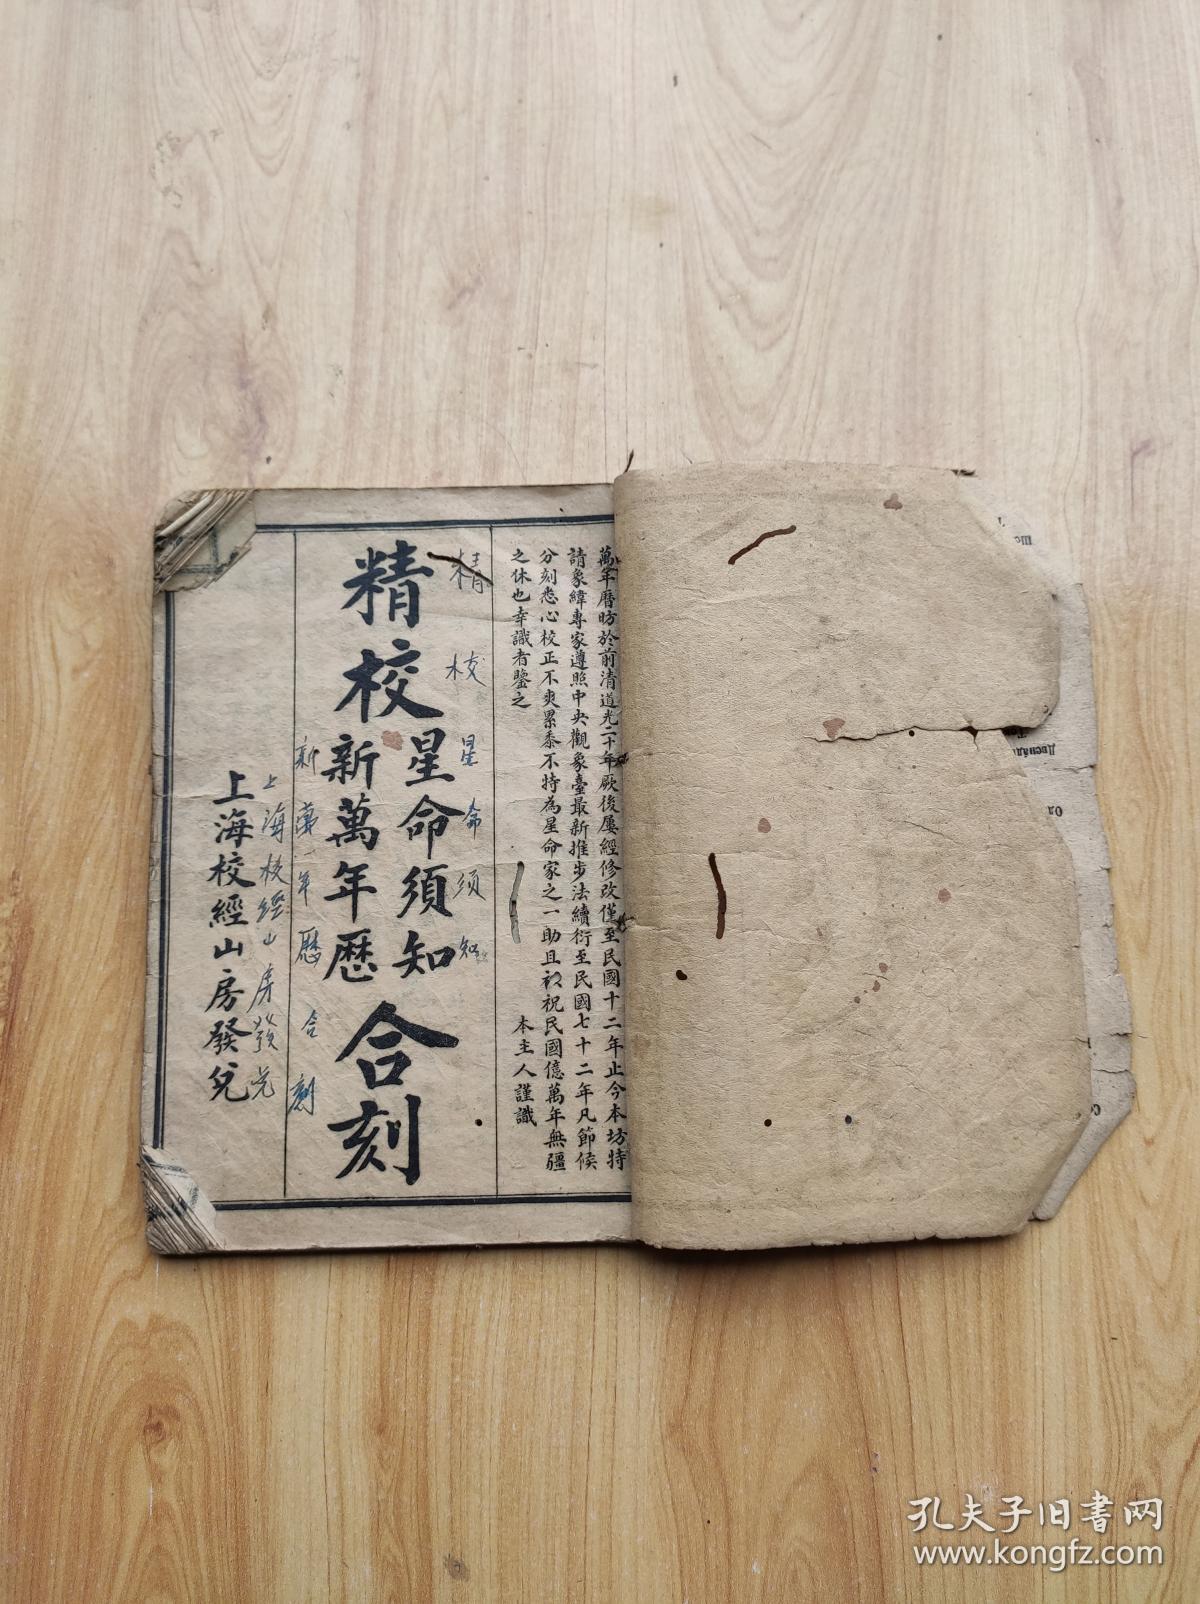 萬年曆昉於前清道光二十年厥後屢經修改僅至民國十二年止今本坊特
請象緯專家遵照中央觀象臺最新推步法續衍至民國七十二年凡節候
分刻悉心校正不爽累黍不特為星命家之一助且祝民國億萬年無疆
之休也幸識者鑒之
本主人謹識
精校
星命須知
新萬年歷
合刻
精校星命須知
新萬年歷合刻
上海校經山房發兌
上海校經山房發兌
Ше
Доспѣл
孔夫子旧书网
www.kongfz.com